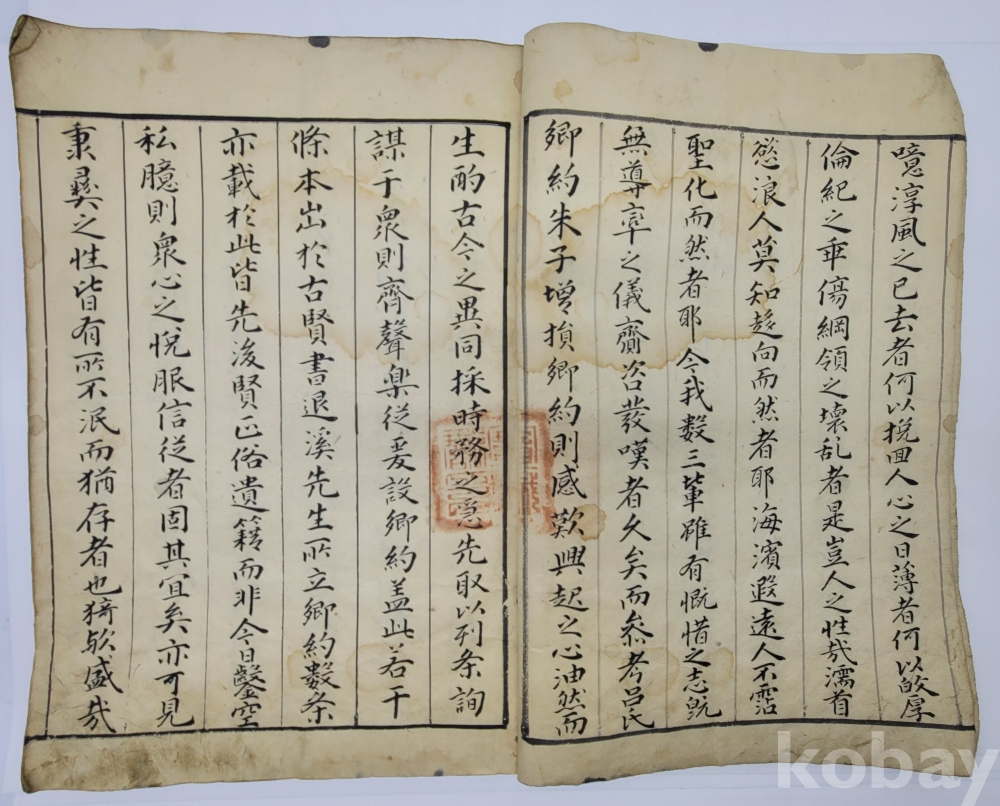 噫淳風之已去者何以挽回人心之日薄者何以皈厚
倫紀之乖傷綱領之壞乱者是豈人之性㢤濡首
慾浪人莫知趍向而然者耶海濱遐遠人不霑
聖化而然者耶今我数三軰雖有慨惜之志旣
無導率之儀齎咨發嘆者久矣而叅考呂氏
鄉約朱子增損鄉約則感歎興起之心油然而
生酌古今之異同採時務之急先取以列条詢
謀于衆則齊聲樂從爰設鄉約盖此若干
條本出於古賢書退溪先生所立鄉約數条
亦載於此皆先後賢正俗遺籍而非今日鑿空
私臆則衆心之悅服信從者固其冝矣亦可見
秉彛之性皆有所不泯而猶存者也猗歟盛㢤
kobay